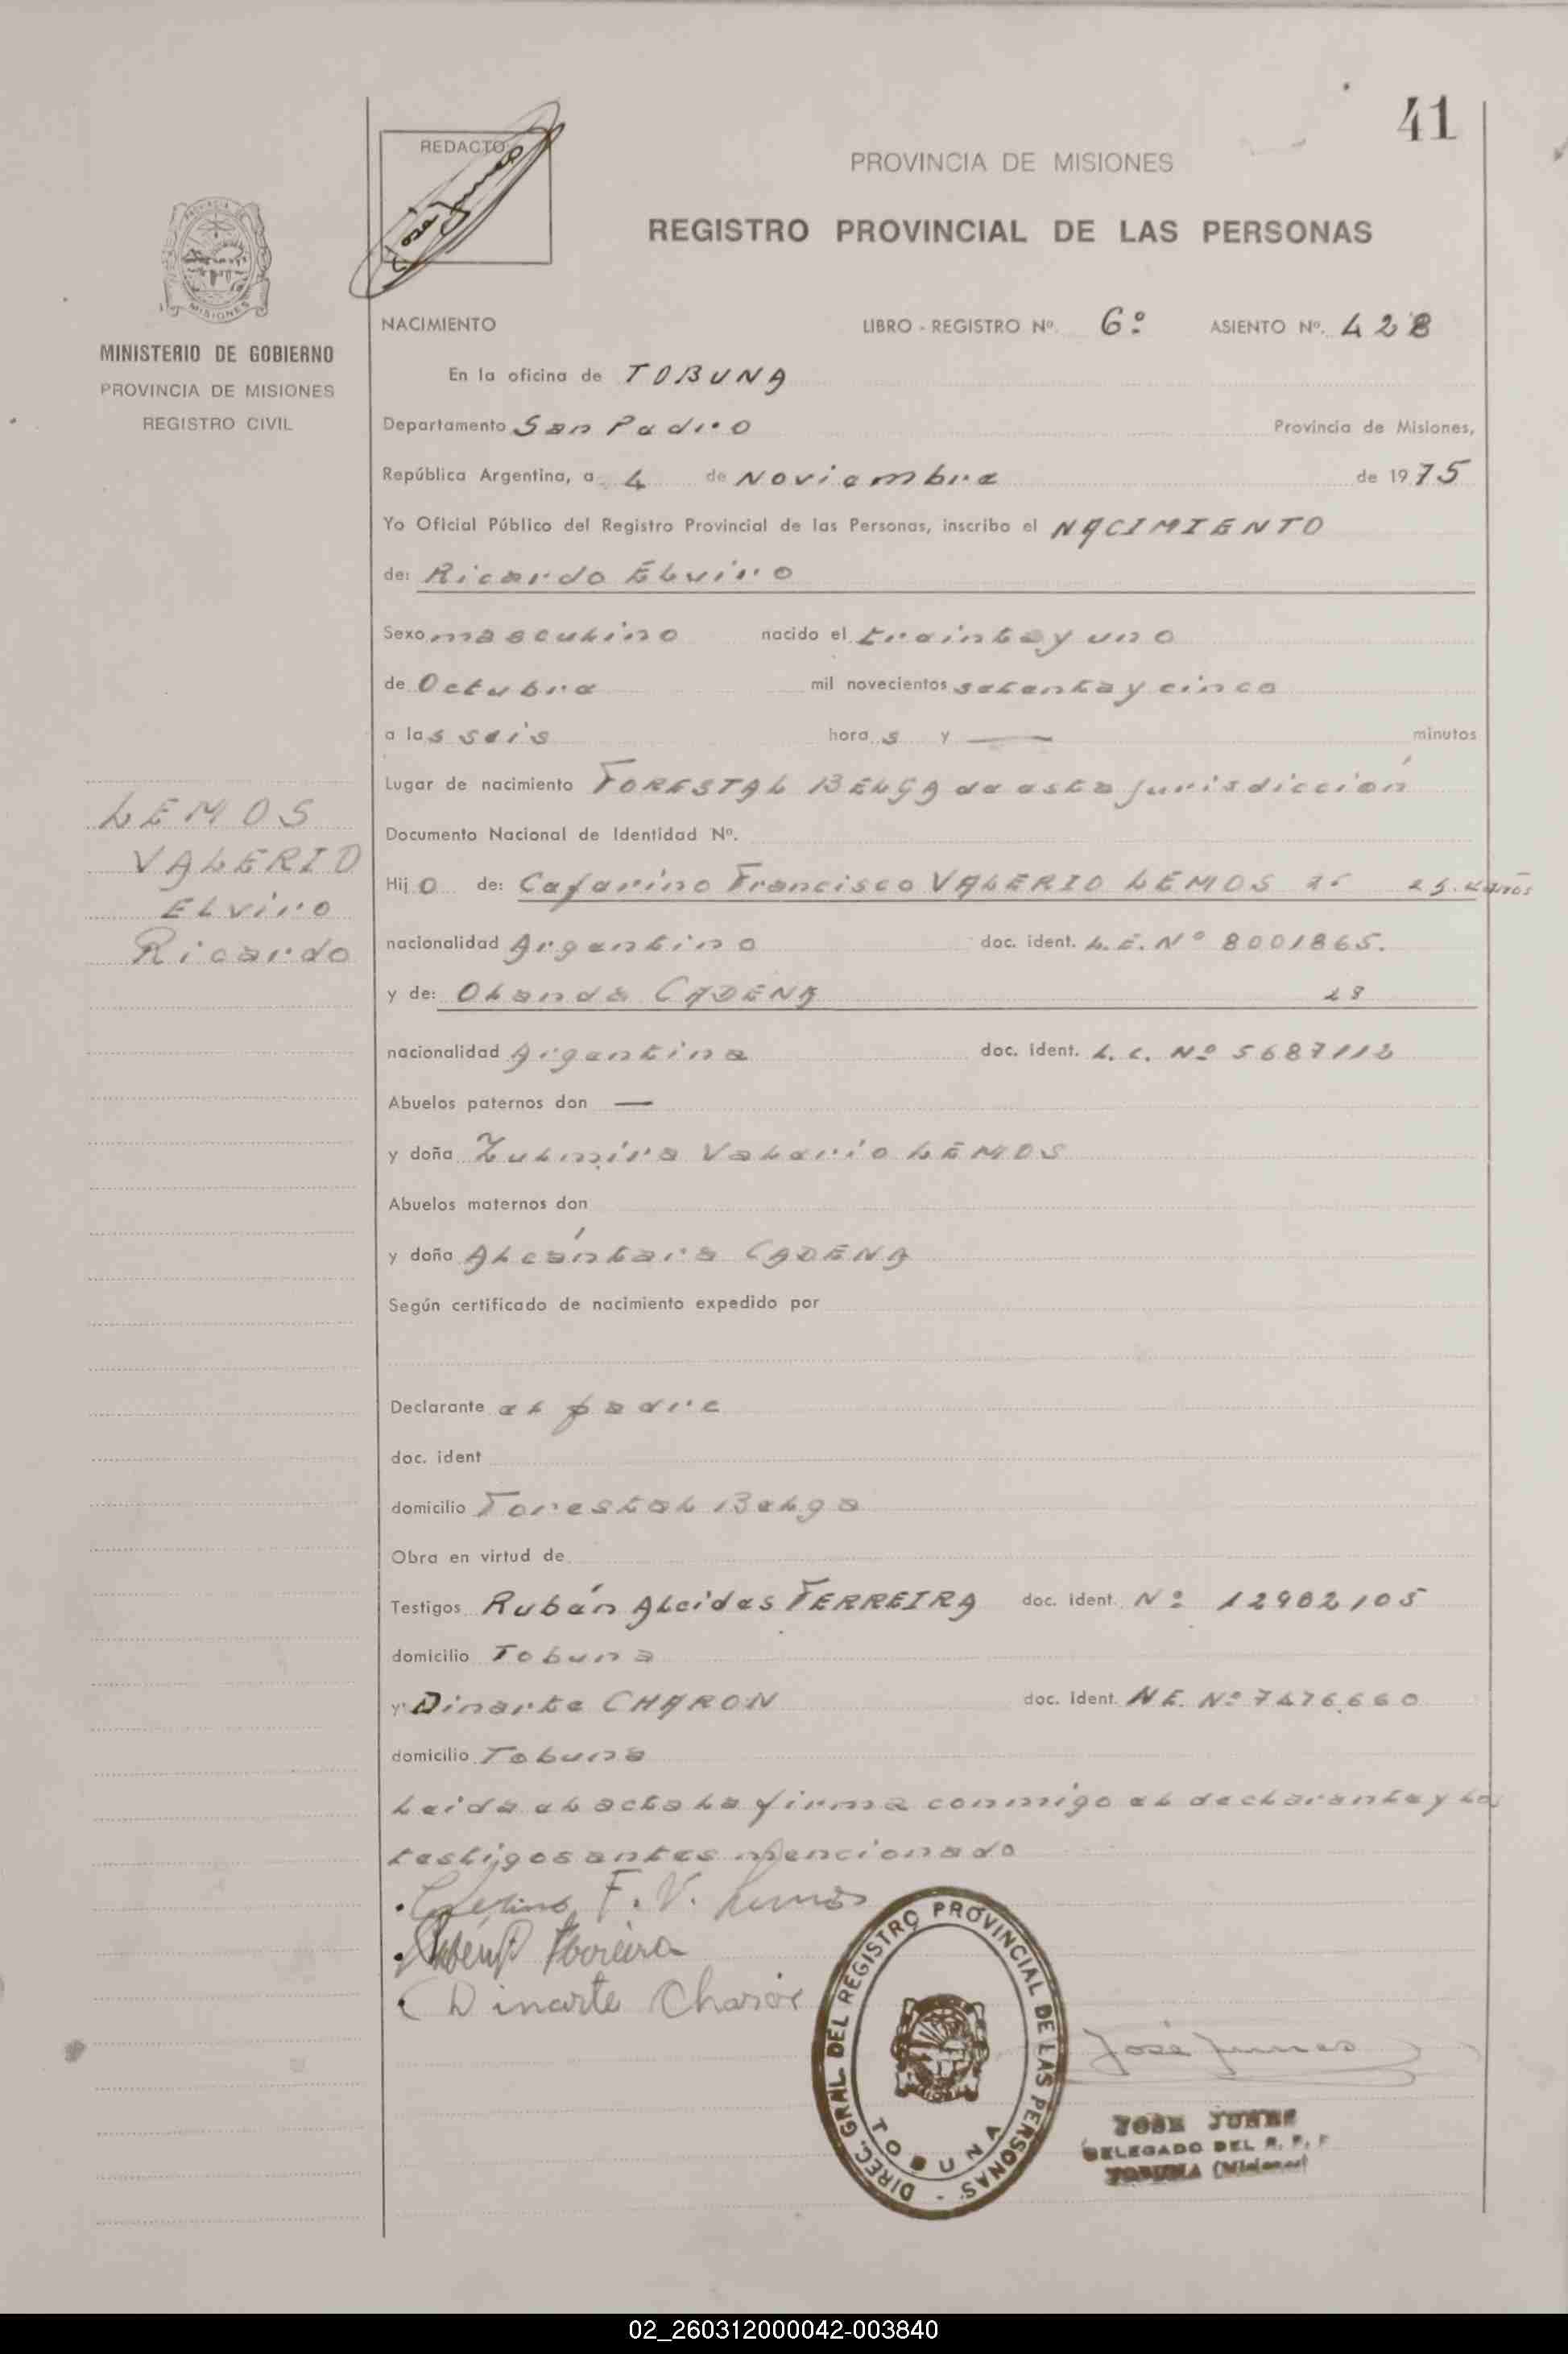 41
REDACTO:
José Junes
PROVINCIA DE MISIONES
REGISTRO PROVINCIAL DE LAS PERSONAS
PROVINCIA DE
MISIONES
MINISTERIO DE GOBIERNO
PROVINCIA DE MISIONES
REGISTRO CIVIL
NACIMIENTO LIBRO - REGISTRO Nº. 6º ASIENTO Nº. 428
En la oficina de TOBUNA
Departamento San Pedro Provincia de Misiones,
República Argentina, a 4 de Noviembre de 1975
Yo Oficial Público del Registro Provincial de las Personas, inscribo el NACIMIENTO
de: Ricardo Elviro
Sexo masculino nacido el treinta y uno
de Octubre mil novecientos setenta y cinco
a las seis horas y — minutos
Lugar de nacimiento FORESTAL BELGA de esta jurisdicción
LEMOS
VALERIO
Elviro
Ricardo
Documento Nacional de Identidad Nº.
Hijo de: Ceferino Francisco VALERIO LEMOS años
nacionalidad Argentino doc. ident. L.E. Nº 8001865.
y de: Olanda CADENA 28
nacionalidad Argentina doc. ident. L.C. Nº 5687112
Abuelos paternos don —
y doña Zulmira Valerio LEMOS
Abuelos maternos don
y doña Alcántara CADENA
Según certificado de nacimiento expedido por
Declarante el padre
doc. ident
domicilio Forestal Belga
Obra en virtud de
Testigos Rubén Alcides FERREIRA doc. ident. Nº 12902105
domicilio Tobuna
y Dinarte CHARON doc. ident. NE. Nº 7476.660
domicilio Tobuna
Leida el acta la firma conmigo el declarante y los
testigos antes mencionado
Ceferino F. V. Lemos
Ferreira
Dinarte Charon
DIREC. GRAL. DEL REGISTRO PROVINCIAL DE LAS PERSONAS -
TOBUNA
José Junes
JOSE JUNES
DELEGADO DEL R. P. P
TOBUNA (Misiones)
02_260312000042-003840